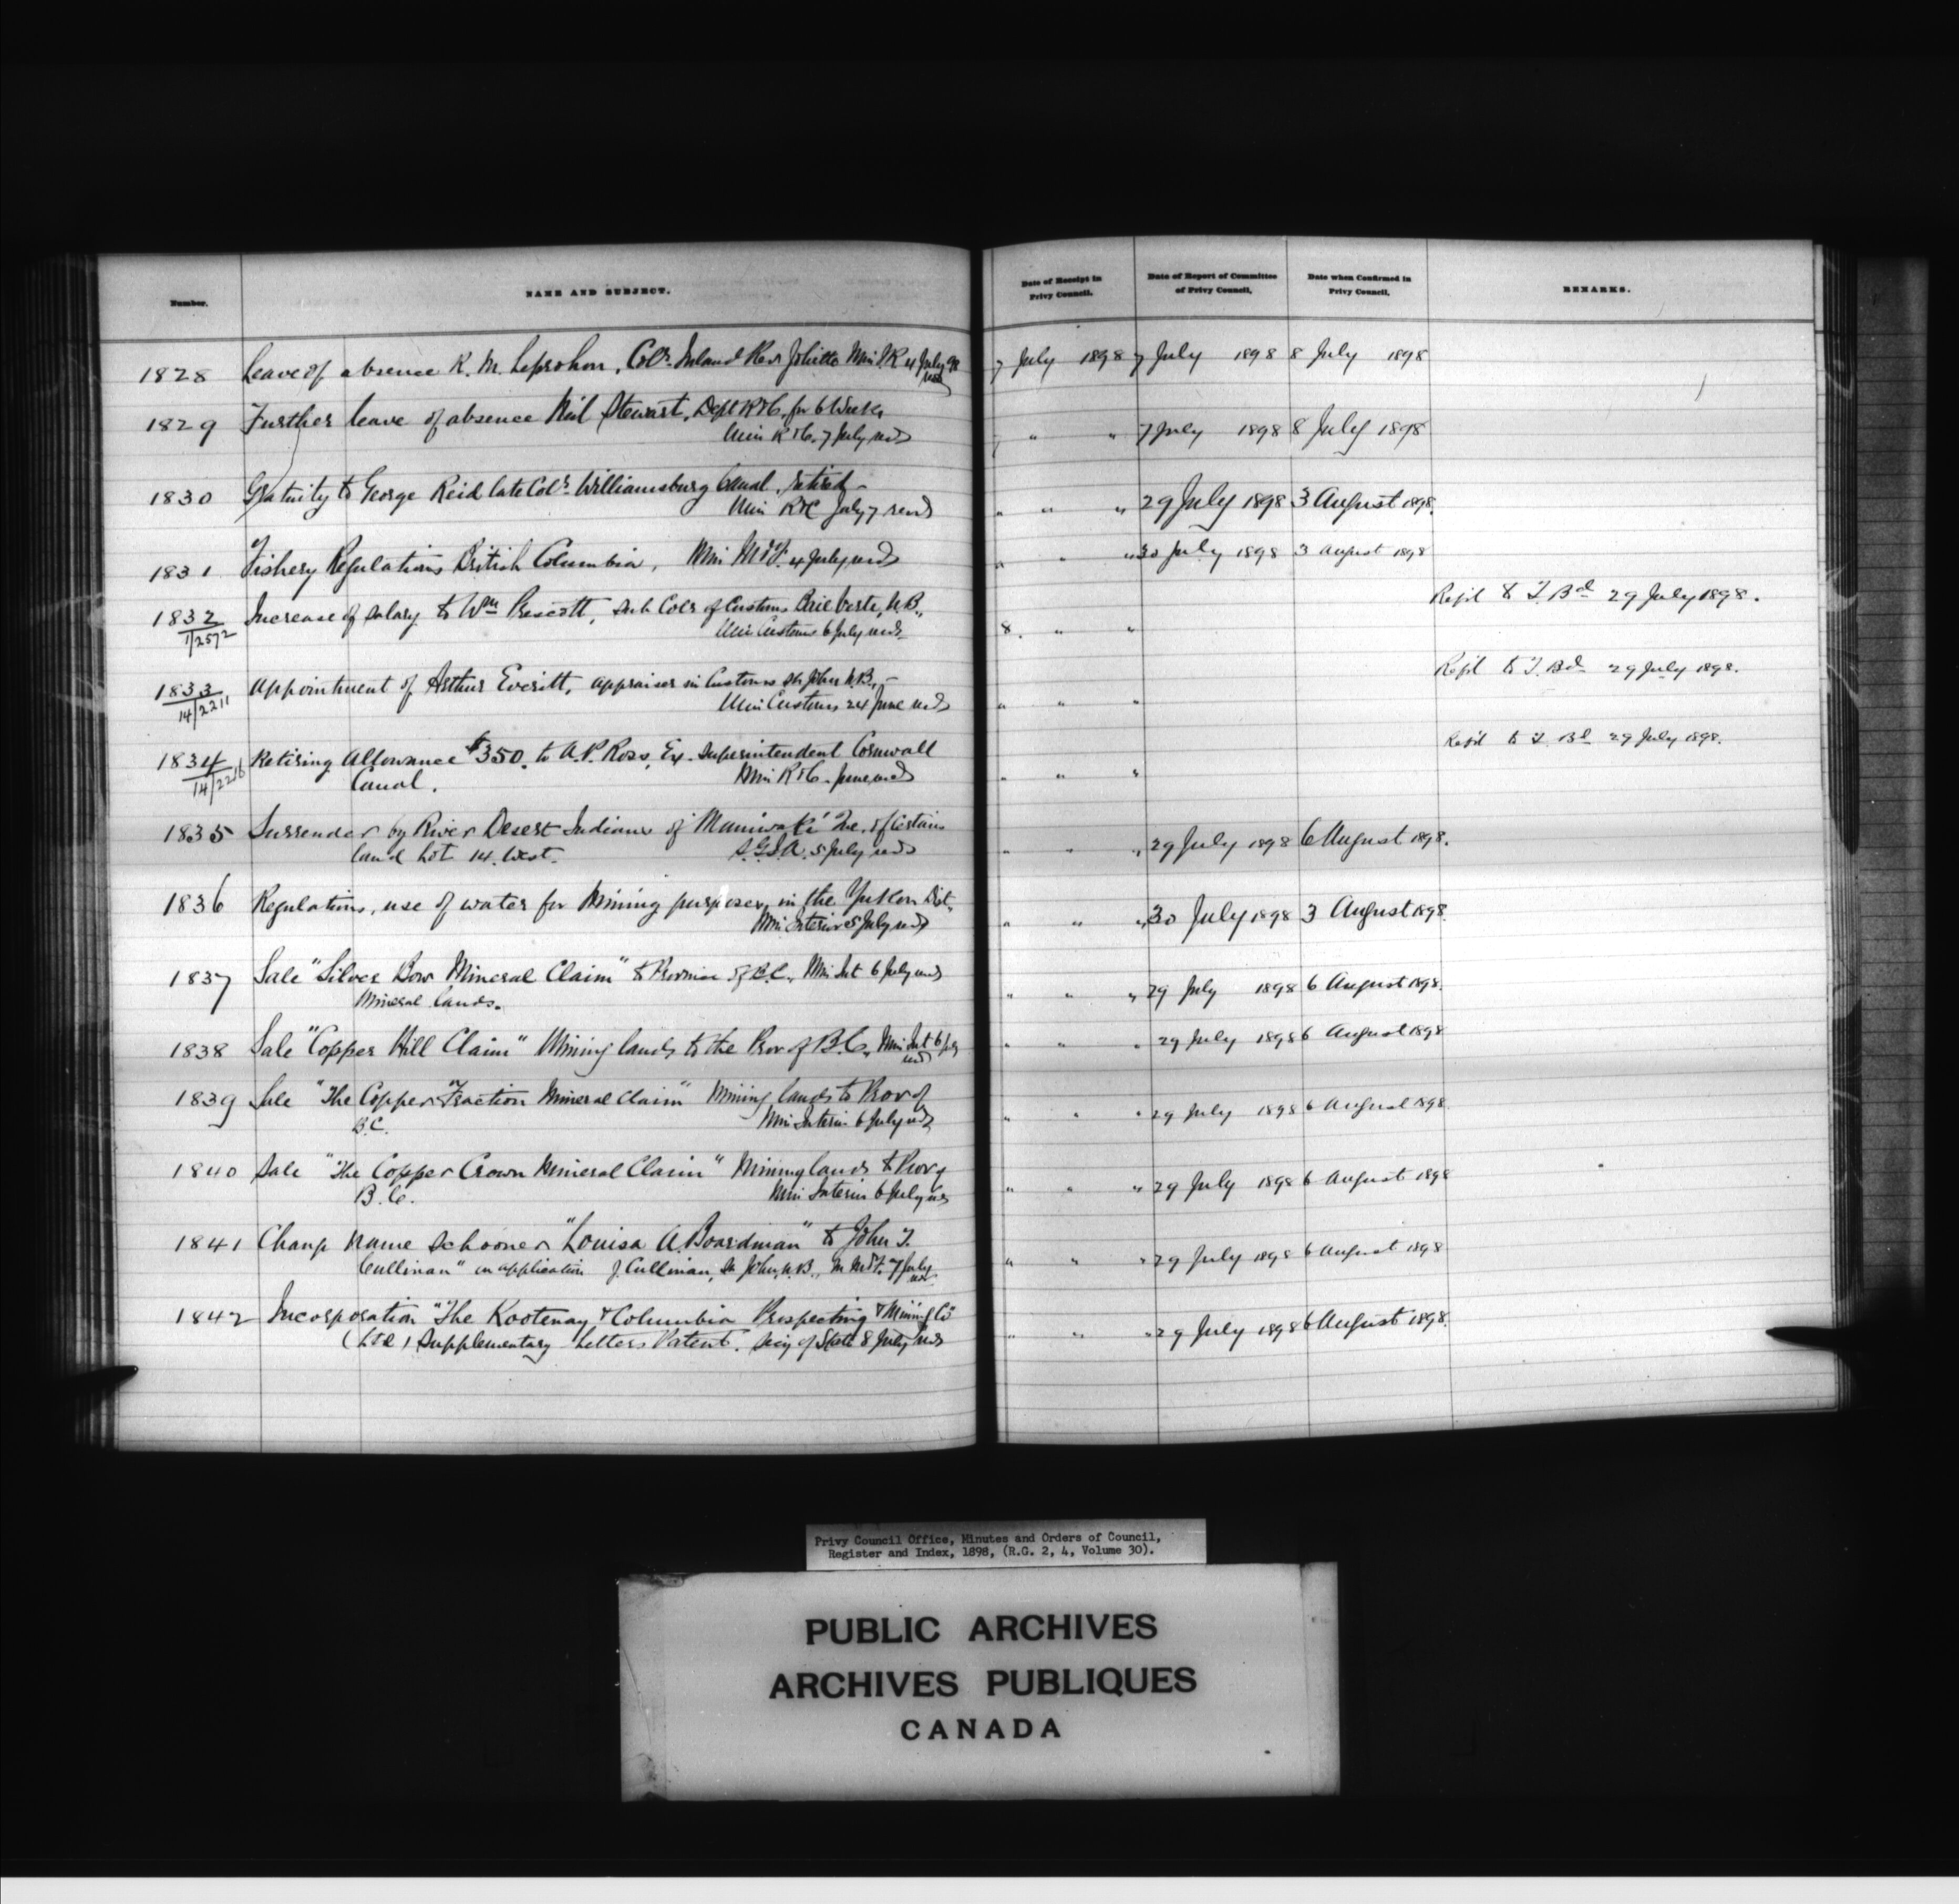 Number.
NAME AND SUBJECT.
Date of Receipt in Privy Council.
Date of Report of Committee of Privy Council.
Date when Confirmed in Privy Council.
REMARKS.
1828 Leave of absence R. M. Leprohon, Colr. Inland Rev Joliette Min I.R 4 July 98 7 July 1898 7 July 1898 8 July 1898
1829 Further leave of absence Neil Stewart, Dept R & C. for 6 Weeks
Min R & C. 7 July 7 " " 7 July 1898 8 July 1898
1830 Gratuity to George Reid late Colr. Williamsburg Canal, retired -
Min R & C July 7 " " " 29 July 1898 3 August 1898.
1831 Fishery Regulations British Columbia, Min M & F. 4 July " " " 30 July 1898 3 August 1898
1832 Increase of salary to Wm Prescott, Sub Colr of Customs Baie Verte, N.B., Ref'd to T. Bd 29 July 1898.
1/2572 Min Customs 6 July 8. " "
1833 Appointment of Arthur Everitt, appraiser in Customs St. John N.B., - Ref'd to T. Bd 29 July 1898.
14/2211 Min Customs 24 June " " "
1834 Retiring Allowance $350. to A.P. Ross, Ex. Superintendent Cornwall Ref'd to T. Bd 29 July 1898.
14/2216 Canal. Min R & C. June " " "
1835 Surrender by River Desert Indians of Maniwaki Que. of Certain
land Lot 14. West. S.G.I.A. 5 July " " " 29 July 1898 6 August 1898.
1836 Regulations, use of water for Mining purposes, in the Yukon Dist.
Min Interior 5 July " " " 30 July 1898 3 August 1898.
1837 Sale "Silver Bow Mineral Claim" to Province of B.C., Min Int 6 July
Mineral lands. " " " 29 July 1898 6 August 1898.
1838 Sale "Copper Hill Claim" Mining lands to the Prov of B.C., Min Int 6 " " " 29 July 1898 6 August 1898
1839 Sale "The Copper "Fraction Mineral Claim" Mining lands to Prov of
B.C. Min Interior 6 July " " " 29 July 1898 6 August 1898
1840 Sale "The Copper Crown Mineral Claim" Mining lands to Prov of
B.C. Min Interior 6 July " " " 29 July 1898 6 August 1898
1841 Change name Schooner "Louisa A. Boardman" to John T.
Cullinan" on application J. Cullinan, St. John, N.B., M M & F. 7 July " " " 29 July 1898 6 August 1898
1842 Incorporation "The Kootenay & Columbia Prospecting & Mining Co"
(Ltd) Supplementary Letters Patent. Secy of State 8 July " " " 29 July 1898 6 August 1898.
Privy Council Office, Minutes and Orders of Council,
Register and Index, 1898, (R.G. 2, 4, Volume 30).
PUBLIC ARCHIVES
ARCHIVES PUBLIQUES
CANADA